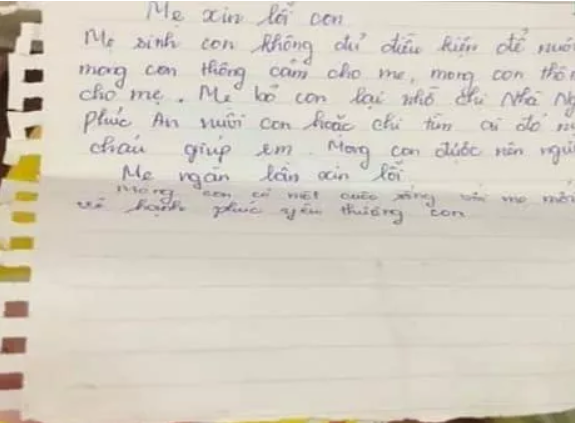 Mẹ xin lỗi con
Mẹ sinh con không đủ điều kiện để nuôi
mong con thông cảm cho mẹ, mong con thô
cho mẹ. Mẹ bỏ con lại nhờ chị Nhà Ng
phúc An nuôi con hoặc chị tìm ai đó n
cháu giúp em. Mong con được nên ngườ
Mẹ ngàn lần xin lỗi
Mong con có một cuộc sống với mẹ mới
và hạnh phúc yêu thương con